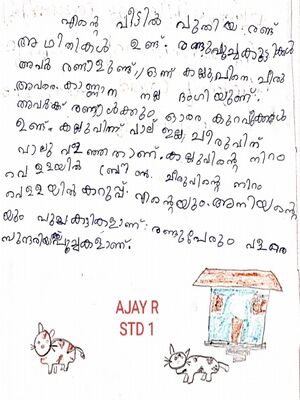 എന്റെ വീട്ടിൽ പുതിയ രണ്ട്
അഥിതികൾ ഉണ്ട്. രണ്ടുപൂച്ചകുട്ടികൾ
അവർ രണ്ടാളുണ്ട് ഒന്ന് കല്ലുപിന്നെ ചീരു
അവരെ കാണാൻ നല്ല ഭംഗിയുണ്ട്.
അവർക്ക് രണ്ടാൾക്കും ഓരോ കുറവുകൾ
ഉണ്ട്. കല്ലുവിന് വാല് ഇല്ല ചീരുവിന്
വാലു വളഞ്ഞതാണ്. കല്ലുവിന്റെ നിറം
വെള്ളയിൽ ബ്രൗൺ. ചീരുവിന്റെ നിറം
വെള്ളയിൽ കറുപ്പ്. എന്റെയും അനിയന്റെ
യും പൂച്ചകുട്ടികളാണ്. രണ്ടുപേരും വളരെ
സുന്ദരിയ പൂച്ചകളാണ്.
AJAY R
STD 1